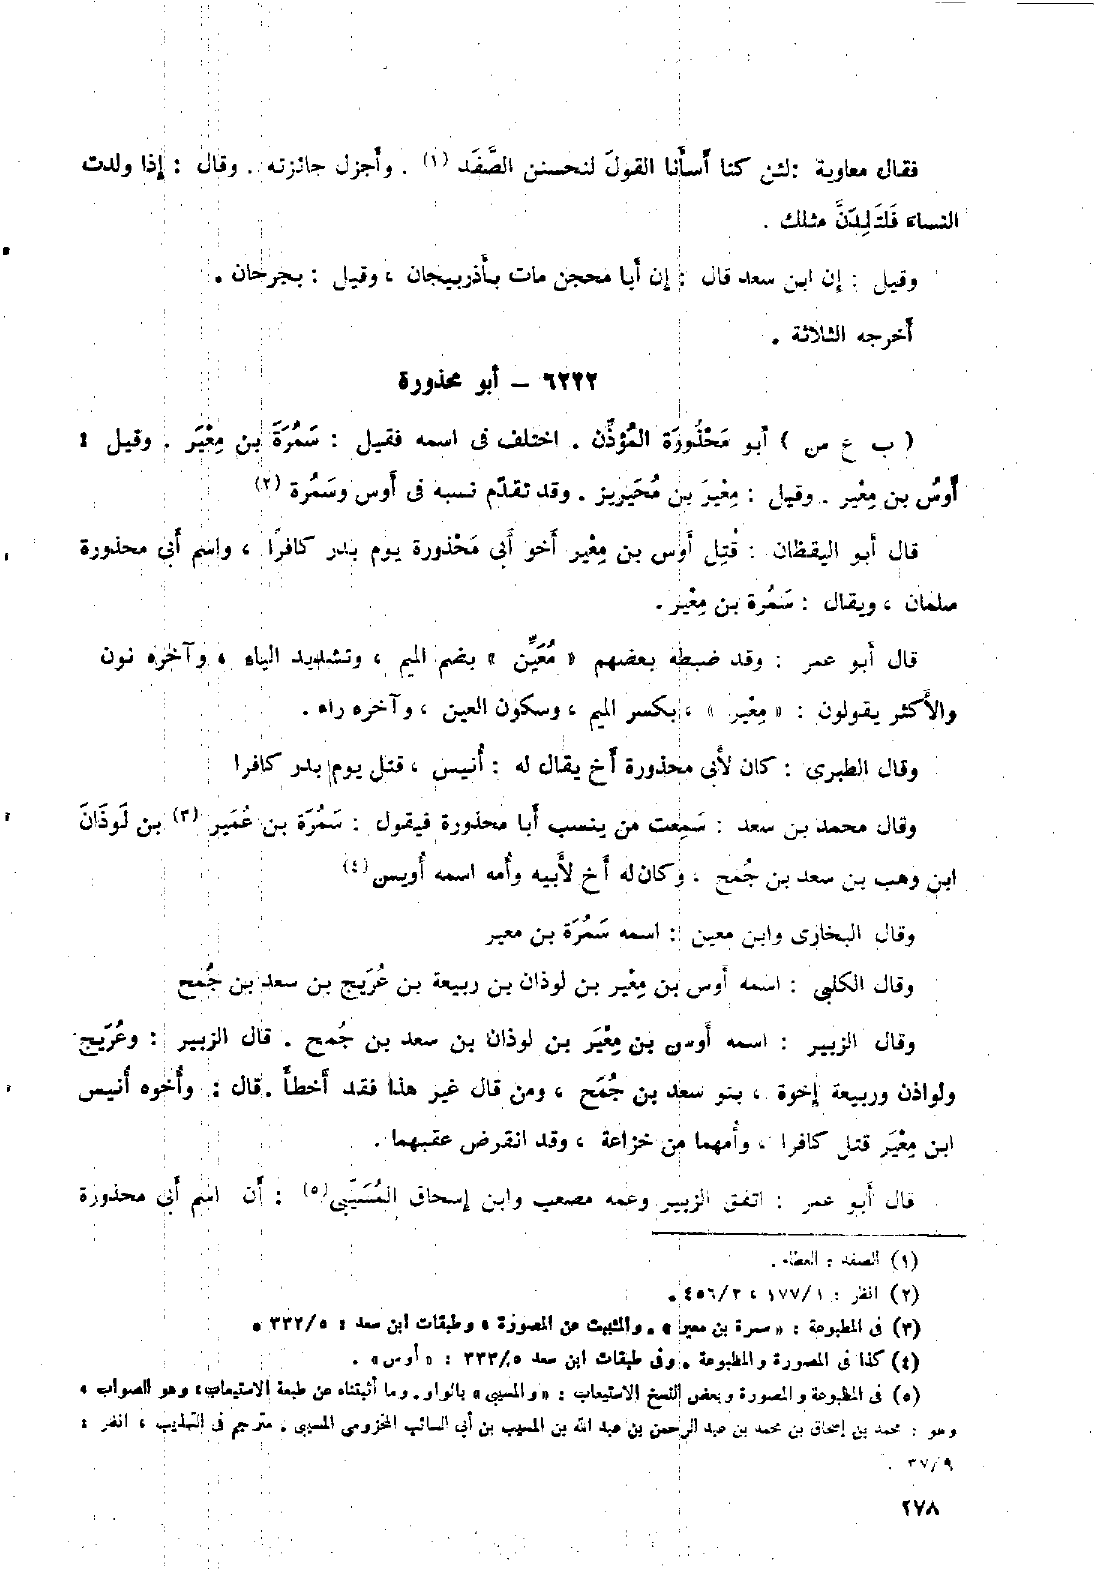 فقال معاوية : لئن كنا أَسأْنا القولَ لنحسنن الصَّفَد (١) . وأَجزل جائزته . وقال : إذا ولدت
النساء فَلتَلِدَنَّ مثلك .
وقيل : إن ابن سعد قال : إن أبا محجن مات بأَذربيجان ، وقيل : بجرجان .
أخرجه الثلاثة .
٦٢٢٢ – أبو محذورة
( ب ع س ) أبو مَحْذُورَة المُؤذِّن . اختلف فى اسمه فقيل : سَمُرَةَ بن مِعْيَر . وقيل :
أَوسُ بن مِعْير . وقيل : مِعْيَر بن مُحَيريز . وقد تقدّم نسبه فى أَوس وسَمُرة (٢)
قال أبو اليقظان : قُتِل أَوس بن مِعْير أخو أَبى مَحْذورة يوم بدر كافرًا ، واسم أبى محذورة
سلمان ، ويقال : سَمُرة بن مِعْيَر .
قال أبو عمر : وقد ضبطه بعضهم « مُعَيِّن » بضم الميم ، وتشديد الياء ، وآخره نون
والأَكثر يقولون : « مِعْير » ، بكسر الميم ، وسكون العين ، وآخره راء .
وقال الطبرى : كان لأَبى محذورة أخ يقال له : أُنيس ، قتل يوم بدر كافرا
وقال محمد بن سعد : سَمِعت من ينسب أبا محذورة فيقول : سَمُرَة بن عُمَير (٣) بن لَوذَانَ
ابن وهب بن سعد بن جُمَح . وكان له أخ لأَبيه وأمه اسمه أُويس (٤)
وقال البخارى وابن معين : اسمه سَمُرَة بن معير
وقال الكلبى : اسمه أَوس بن مِعْيَر بن لوذان بن ربيعة بن عُرَيج بن سعد بن جُمح
وقال الزبير : اسمه أَوس بن مِعْيَر بن لوذان بن سعد بن جُمح . قال الزبير : وعُرَيج
ولواذن وربيعة إخوة ، بنو سعد بن جُمَح ، ومن قال غير هذا فقد أَخطأَ . قال : وأَخوه أُنيس
ابن مِعْيَر قتل كافرا ، وأُمهما من خزاعة ، وقد انقرض عقبهما .
قال أبو عمر : اتفق الزبير وعمه مصعب وابن إسحاق المُسَيَّبى (٥) : أَن اسم أبى محذورة
(١) الصفد : العطاء .
(٢) انظر : ١/١٧٧ ، ٢/٤٥٦ .
(٣) فى المطبوعة : « سمرة بن معير » . والمثبت عن المصورة ، وطبقات ابن سعد : ٥/٣٣٢ .
(٤) كذا فى المصورة والمطبوعة . وفى طبقات ابن سعد ٥/٣٣٣ : « أوس » .
(٥) فى المطبوعة والمصورة وبعض النسخ الاستيعاب : « والمسيبى » بالواو . وما أثبتناه عن طبعة الاستيعاب ، وهو الصواب ،
وهو : محمد بن إسحاق بن محمد بن عبد الرحمن بن عبد الله بن المسيب بن أبى السائب المخزومى المسيبى . مترجم فى التهذيب ، انظر :
٩/٣٧ .
٢٧٨